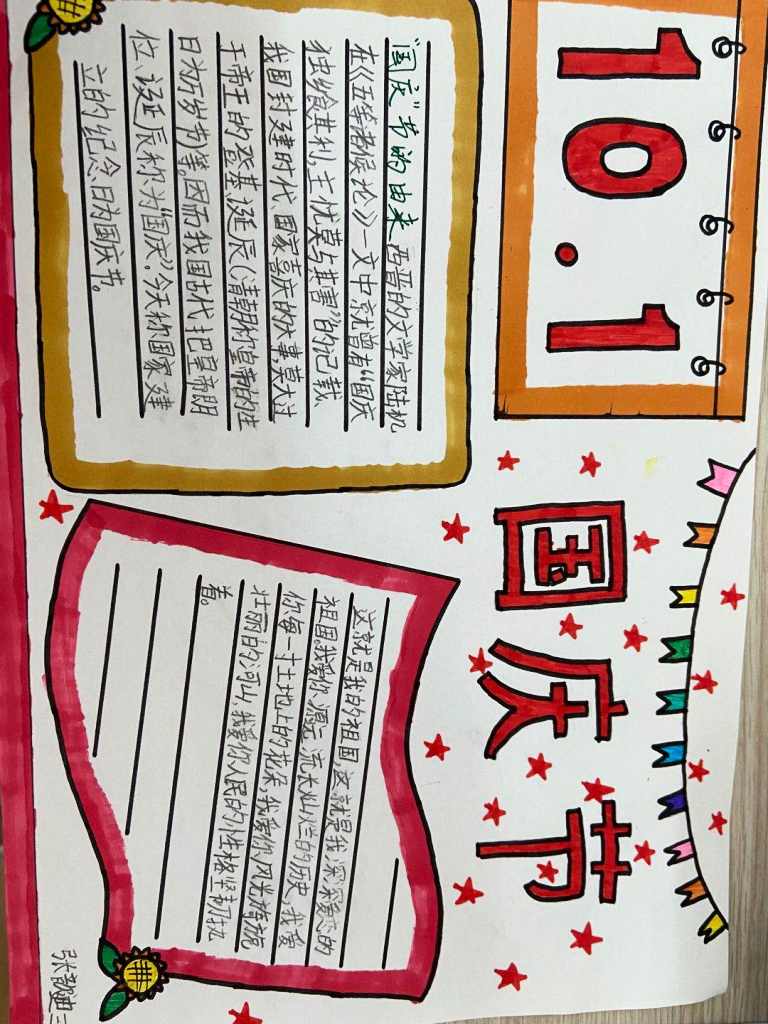 10.1
国庆节
"国庆"节的由来 西晋的文学家陆机
在《五等诸侯论》一文中就曾有"国庆
独飨其利,主忧莫与其害"的记载
我国封建时代、国家喜庆的大事莫大过
于帝王的登基、诞辰(清朝称皇帝的生
日为万岁节)等。因而我国古代把皇帝即
位、诞辰称为"国庆"。今天称国家建
立的纪念日为国庆节。
这就是我的祖国,这就是我深深爱恋的
祖国。我爱你源远流长灿烂的历史,我爱
你每一寸土地上的花朵,我爱你风光旖旎
壮丽的河山,我爱你人民的性格坚韧执
着。